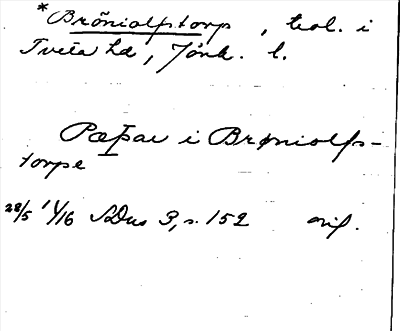 *Brőniolfstorp, bel. i
Tveta hd, Jönk. l.
Pæþar i Brøniolfs-
torpe
28/5 1416 SDns 3, s. 152 orig.